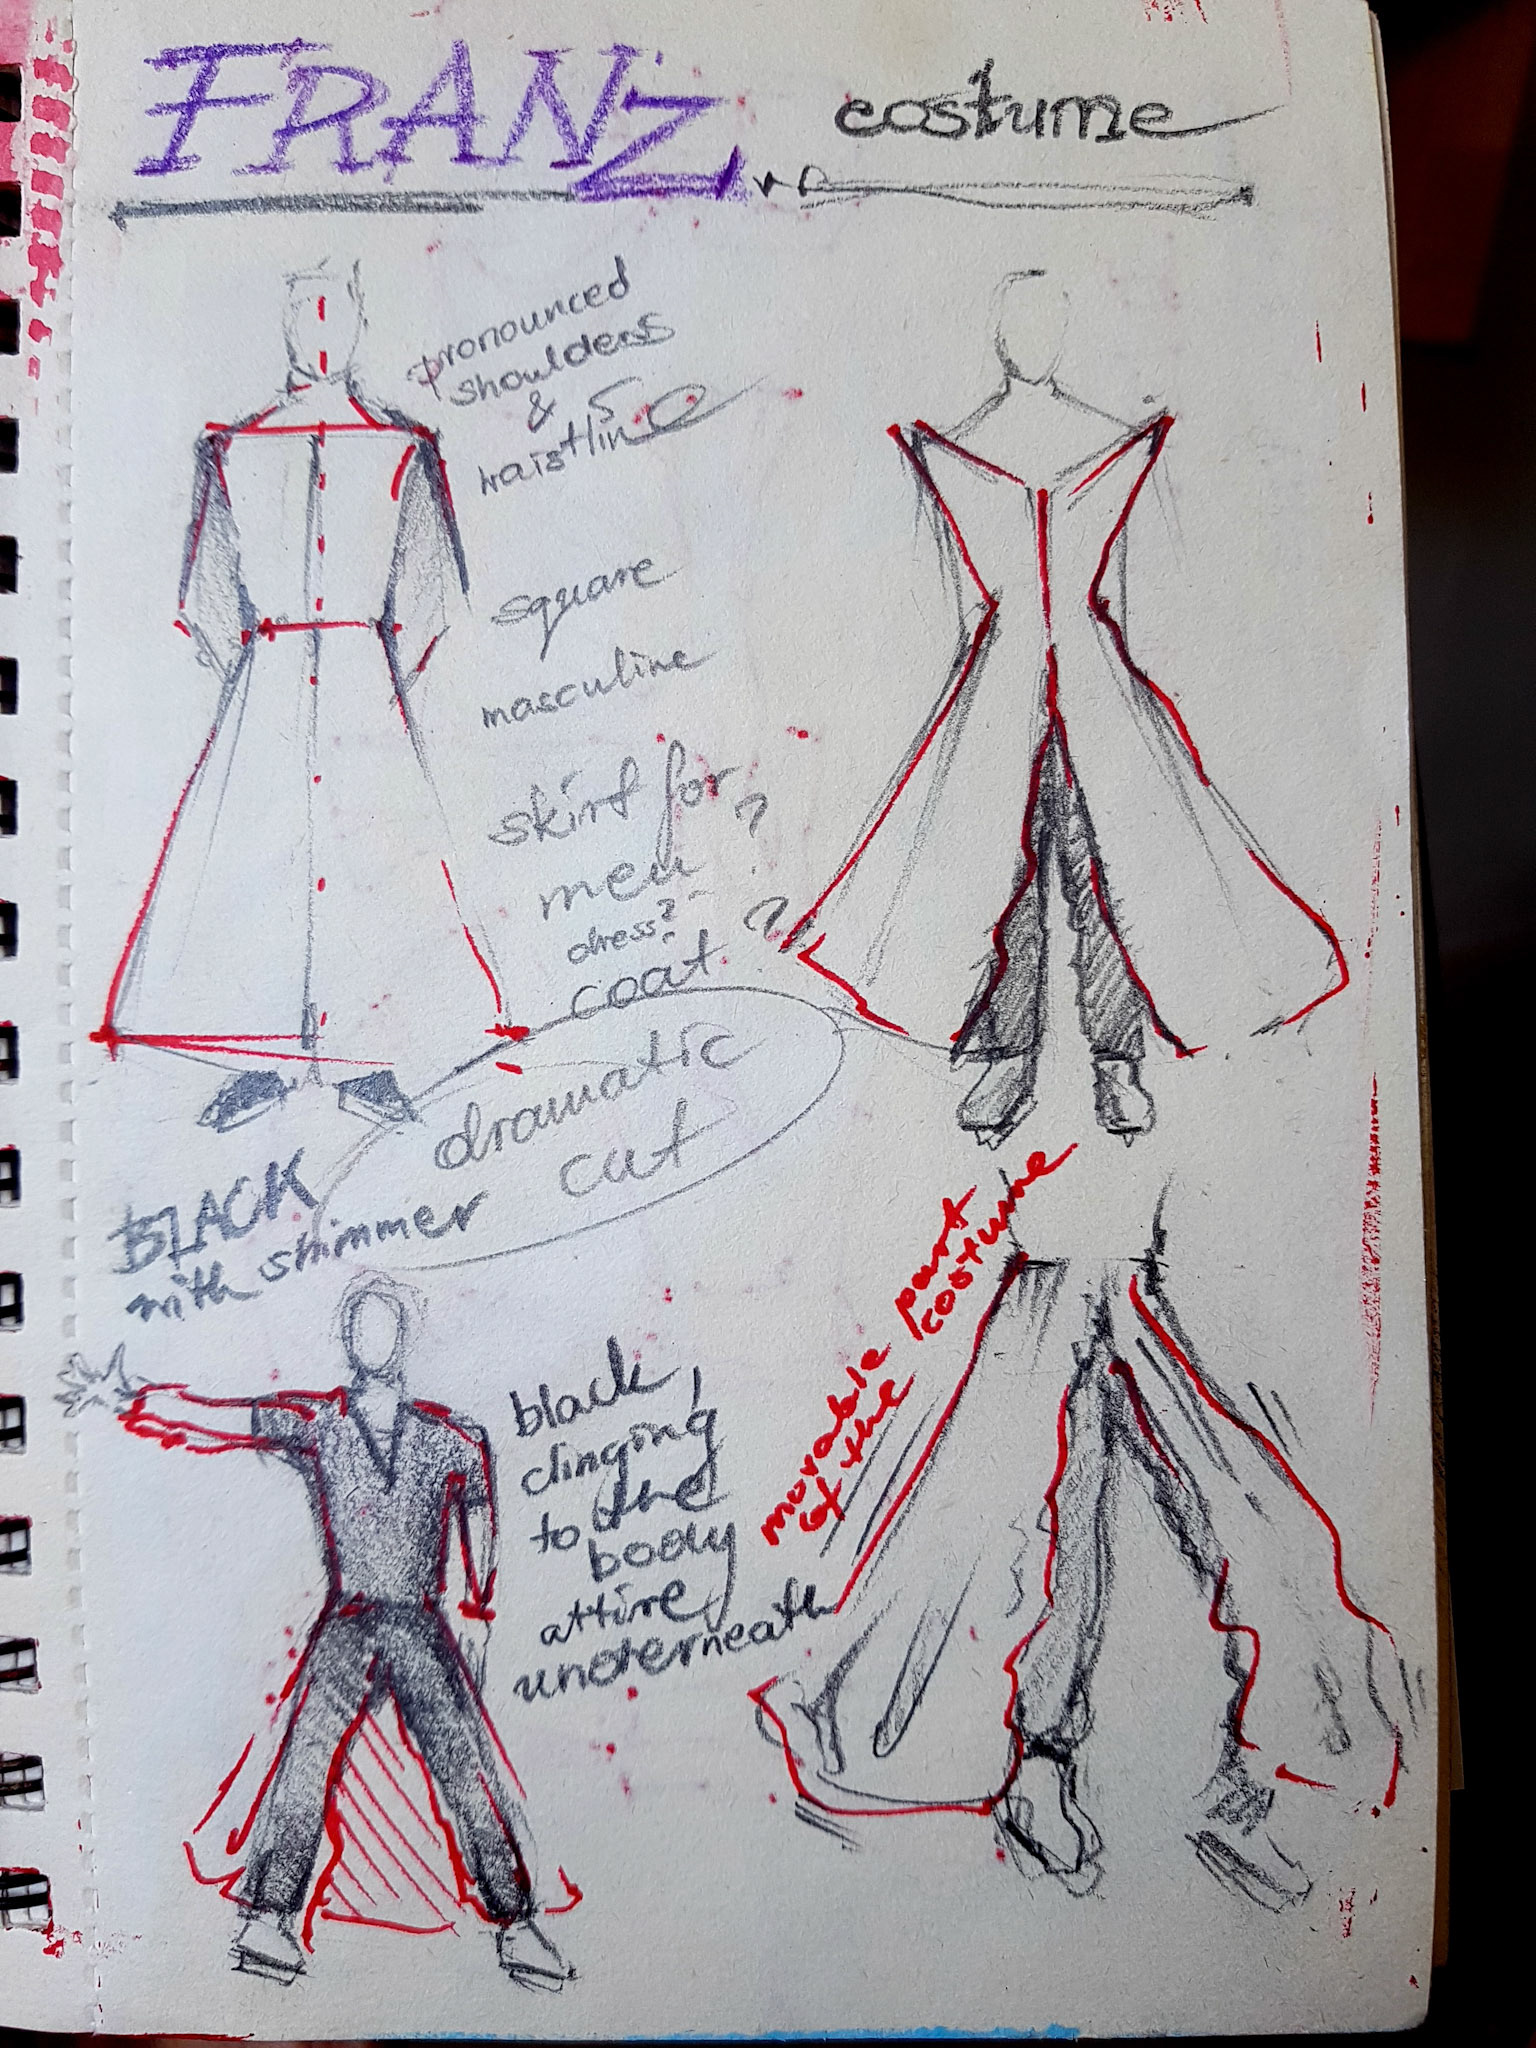 FRANZ costume
pronounced
shoulders
&
waistline
square
masculine
skirt for
men ?
dress? ?
coat
dramatic
cut
BLACK
with shimmer
movable part
of the costume
black,
clinging
to the
body
attire
underneath